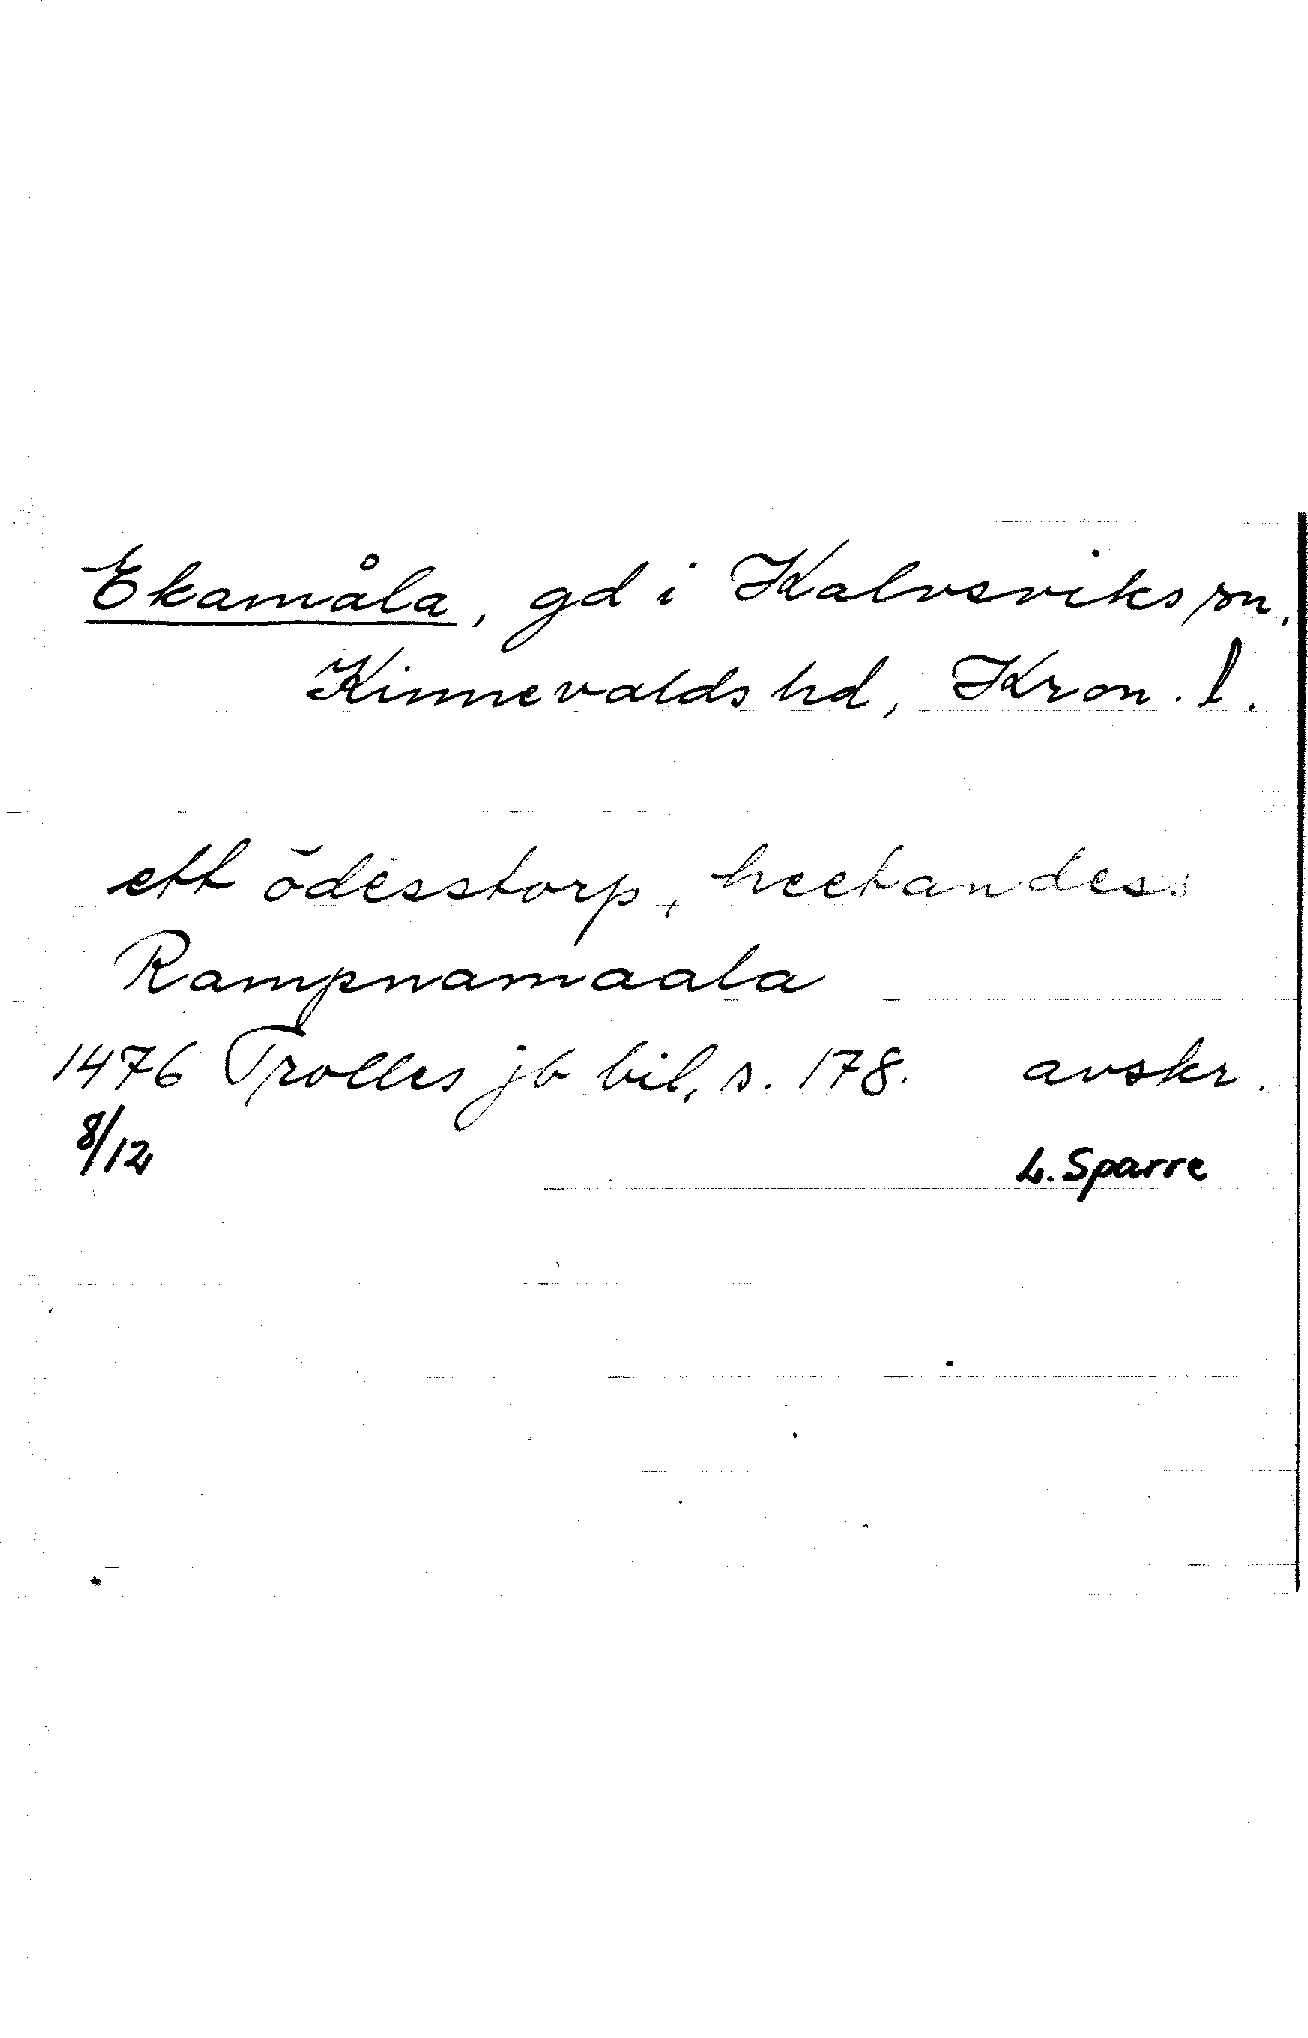 Ekamåla, gd i Kalvsviks sn,
Kinnevalds hd, Kron. l.
ett ödesstorp, heetandes:
Rampnamaala
1476 Trolles jb bil, s. 178. avskr.
8/12 L. Sparre